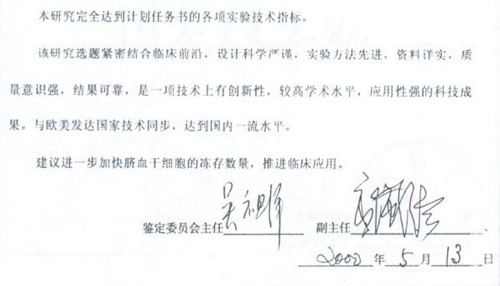 本研究完全达到计划任务书的各项实验技术指标。
该研究选题紧密结合临床前沿，设计科学严谨，实验方法先进，资料详实，质
量意识强，结果可靠，是一项技术上有创新性，较高学术水平，应用性强的科技成
果。与欧美发达国家技术同步，达到国内一流水平。
建议进一步加快脐血干细胞的冻存数量，推进临床应用。
鉴定委员会主任 副主任 、
2000 年 5 月 13 日